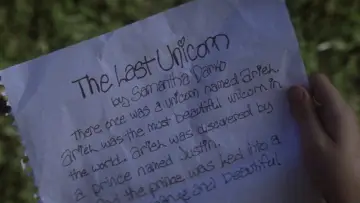 The Last Unicorn
by Samantha Darko
There once was a unicorn named Ariel.
Ariel was the most beautiful unicorn in
the world. Ariel was discovered by
a prince named Justin.
And the prince was lead into a
and beautiful